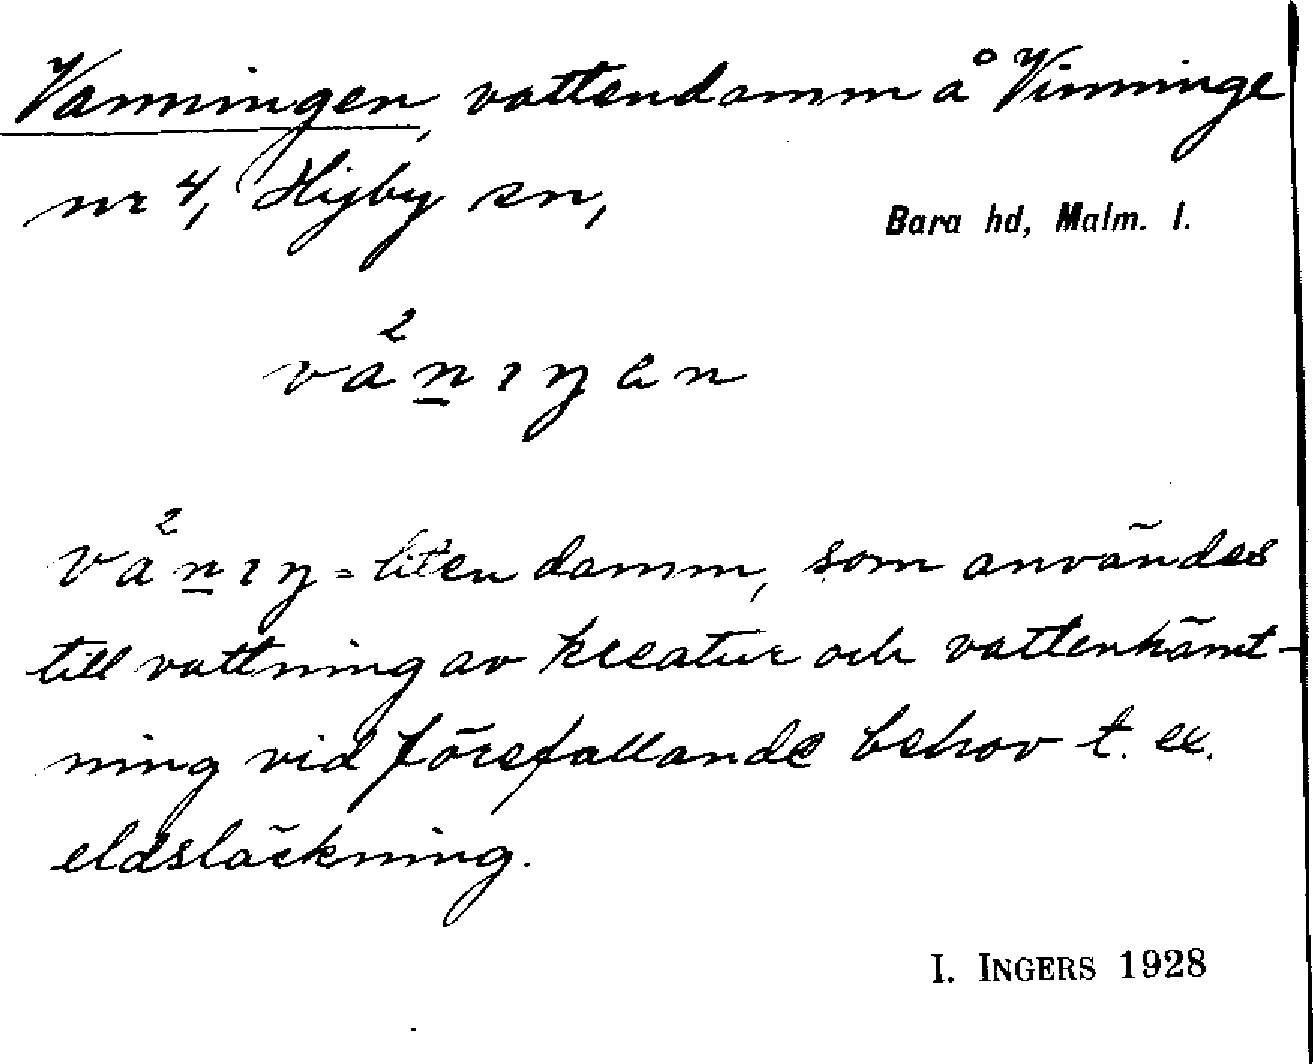 Vanningen, vattendamm å Vinninge
nr 4, Hyby sn,
Bara hd, Malm. l.
vȧ²n̲ıŋən
vȧ²n̲ıŋ = liten damm, som användes
till vattning av kreatur och vattenhämt-
ning vid förefallande behov t. ex.
eldsläckning.
I. INGERS 1928